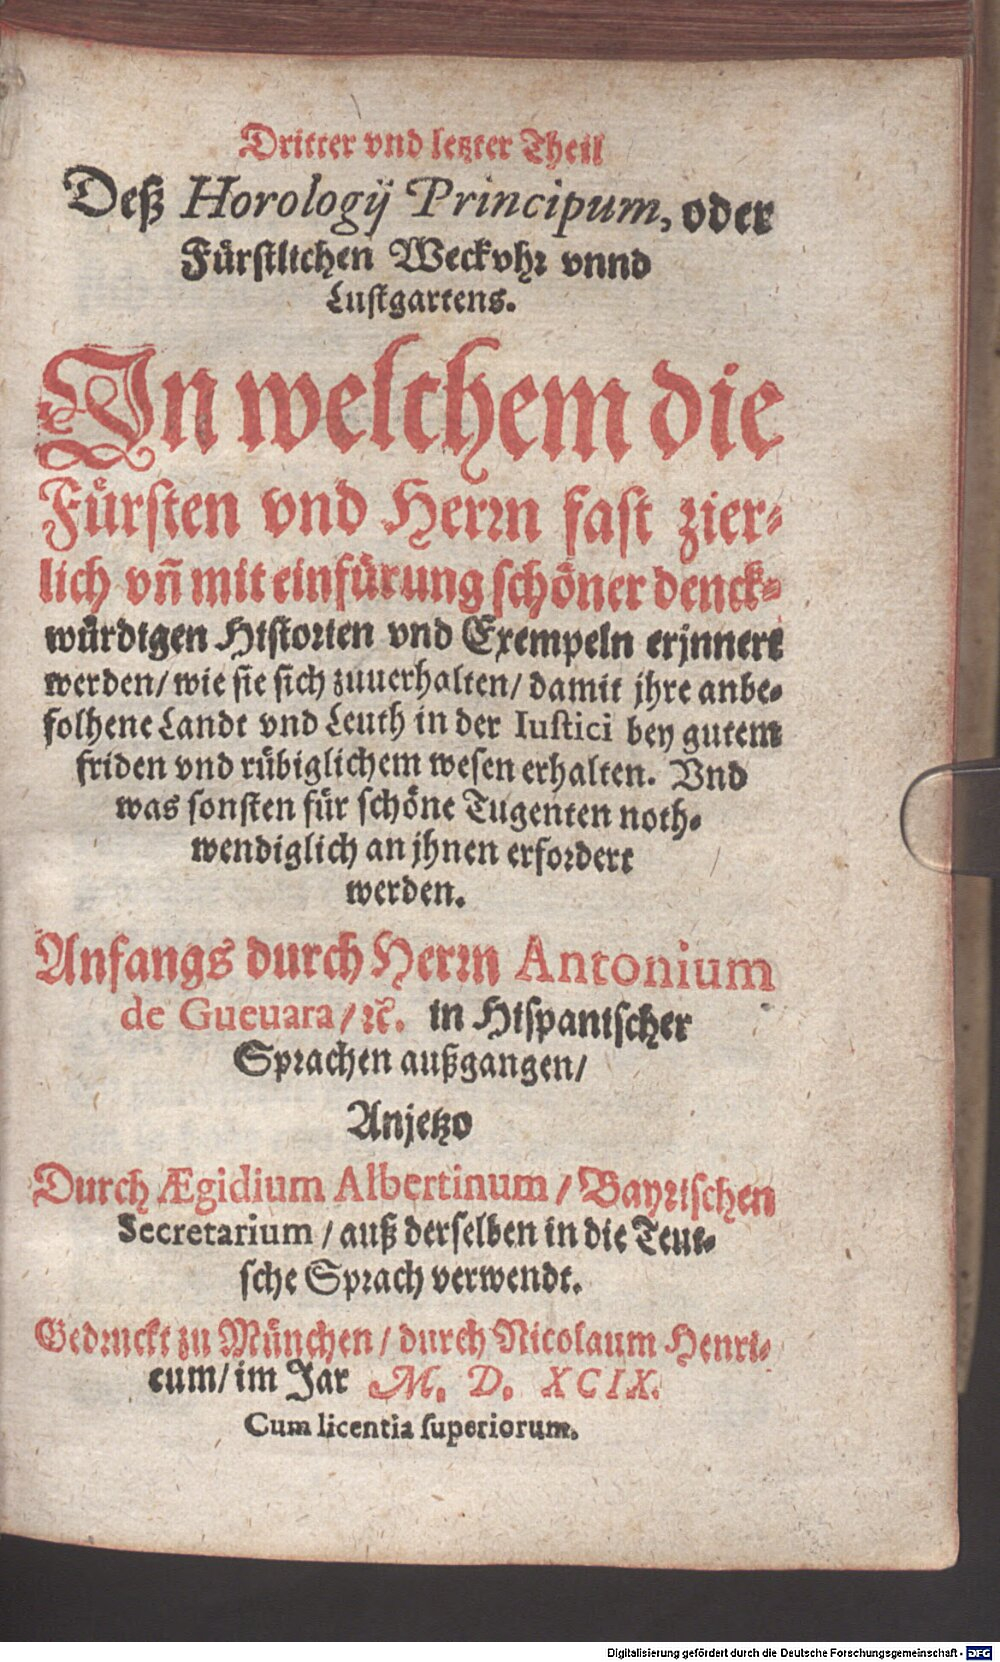 Dritter vnd letzter Theil
Deß Horologij Principum, oder
Fürstlichen Weckvhr vnnd
Lustgartens.
In welchem die
Fürsten vnd Herrn fast zier-
lich vñ mit einfürung schöner denck-
würdigen Historien vnd Exempeln erjnnert
werden/ wie sie sich zuuerhalten/ damit jhre anbe-
folhene Landt vnd Leuth in der Iustici bey gutem
friden vnd rübiglichem wesen erhalten. Vnd
was sonsten für schöne Tugenten noth-
wendiglich an jhnen erfordert
werden.
Anfangs durch Herrn Antonium
de Gueuara/ ꝛc. in Hispanischer
Sprachen außgangen/
Anjetzo
Durch Ægidium Albertinum / Bayrischen
Secretarium / auß derselben in die Teut-
sche Sprach verwendt.
Gedruckt zu München/ durch Nicolaum Henri-
cum/ im Jar M. D. XCIX.
Cum licentia superiorum.
Digitalisierung gefördert durch die Deutsche Forschungsgemeinschaft - DFG